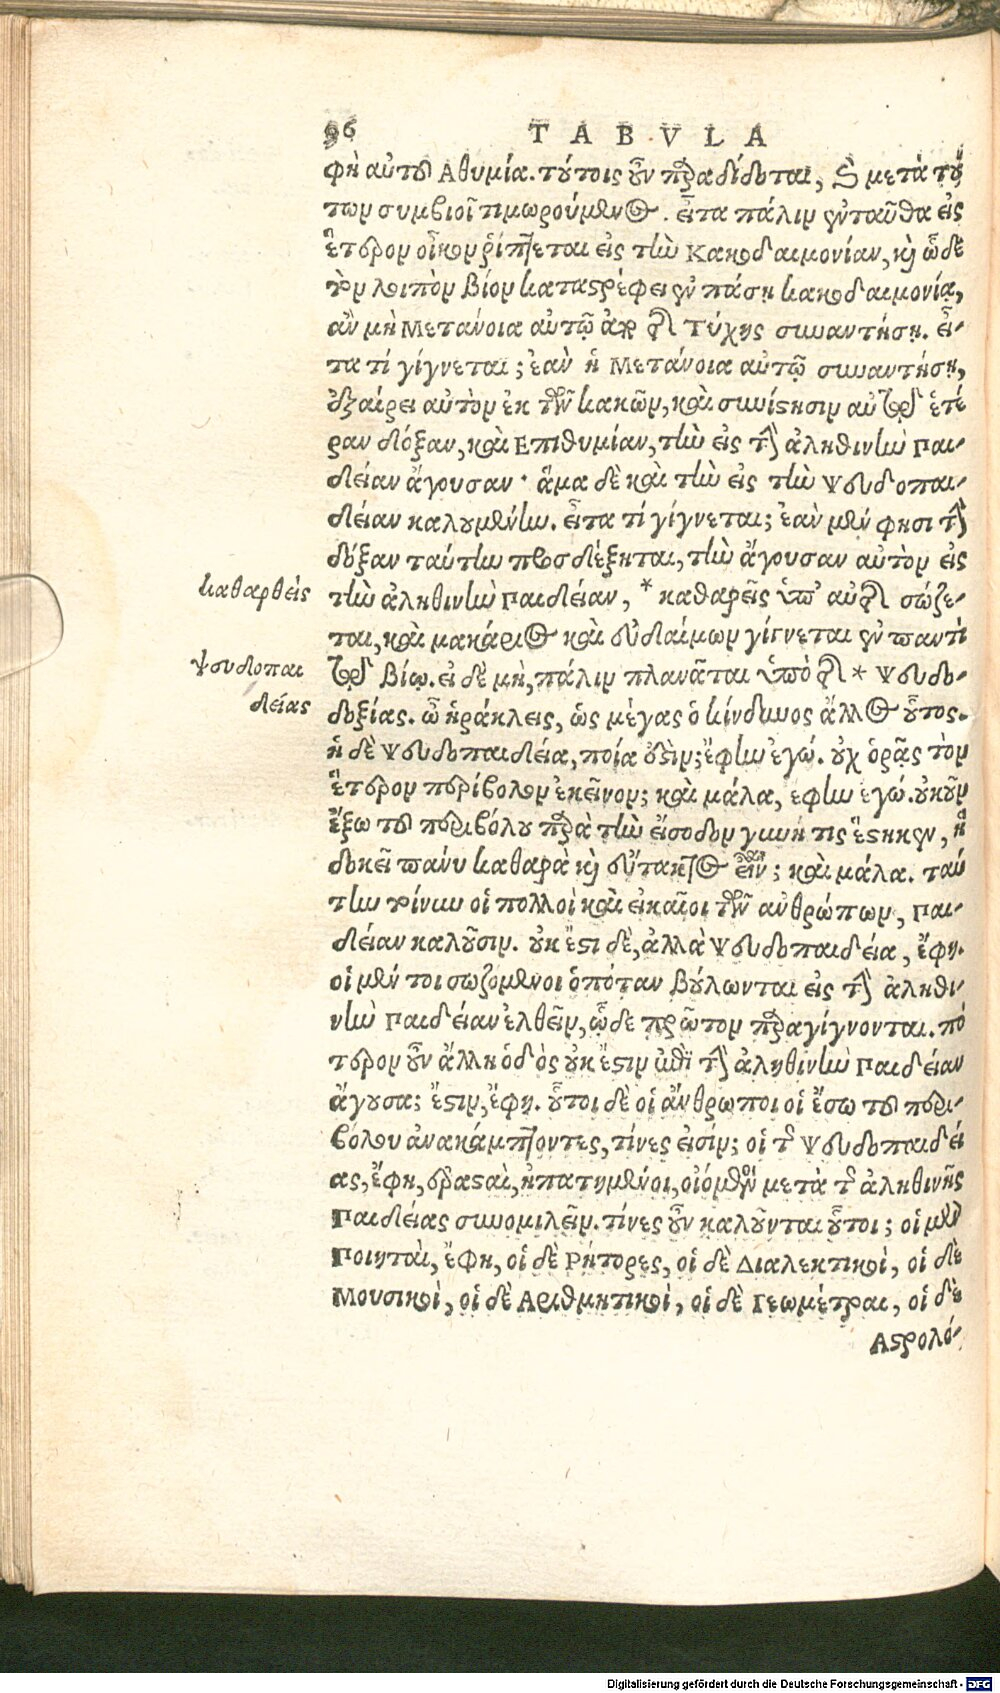 96 TABVLA
φὴ αὐτοῦ Ἀθυμία. τούτοις οὖν παραδίδοται, καὶ μετὰ τού
των συμβιοῖ τιμωρούμενος. εἶτα πάλιν ἐνταῦθα εἰς
ἕτερον οἶκον ῥίπτεται εἰς τὴν Κακοδαιμονίαν, καὶ ὧδε
τὸν λοιπὸν βίον καταστρέφει ἐν πάσῃ κακοδαιμονίᾳ,
ἂν μὴ Μετάνοια αὐτῷ ἀπὸ τῆς Τύχης συναντήσῃ. εἶ-
τα τί γίγνεται; ἐὰν ἡ Μετάνοια αὐτῷ συναντήσῃ,
ἐξαίρει αὐτὸν ἐκ τῶν κακῶν, καὶ συνίστησιν αὐτῷ ἑτέ
ραν δόξαν, καὶ Ἐπιθυμίαν, τὴν εἰς τὴν ἀληθινὴν Παι-
δείαν ἄγουσαν· ἅμα δὲ καὶ τὴν εἰς τὴν Ψευδοπαι-
δείαν καλουμένην. εἶτα τί γίγνεται; ἐὰν μέν φησι τὴν
δόξαν ταύτην προσδέξηται, τὴν ἄγουσαν αὐτὸν εἰς
καθαρθεὶς
τὴν ἀληθινὴν Παιδείαν, * καθαρεῖς ὑπ' αὐτῆς σώζε-
ται, καὶ μακάριος καὶ εὐδαίμων γίγνεται ἐν παντὶ
ψευδοπαι
δείας
τῷ βίῳ. εἰ δὲ μὴ, πάλιν πλανᾶται ὑπὸ τῆς * Ψευδο-
δοξίας. ὦ ἡράκλεις, ὡς μέγας ὁ κίνδυνος ἄλλος οὗτος.
ἡ δὲ Ψευδοπαιδεία, ποία ἐστὶν; ἔφην ἐγώ. οὐχ ὁρᾷς τὸν
ἕτερον περίβολον ἐκεῖνον; καὶ μάλα, ἔφην ἐγώ. οὐκοῦν
ἔξω τοῦ περιβόλου παρὰ τὴν εἴσοδον γυνή τις ἕστηκεν, ἣ
δοκεῖ πάνυ καθαρὰ καὶ εὔτακτος εἶναι; καὶ μάλα. ταύ
την τοίνυν οἱ πολλοὶ καὶ εἰκαῖοι τῶν ἀνθρώπων, Παι-
δείαν καλοῦσιν. οὐκ ἔστι δὲ, ἀλλὰ Ψευδοπαιδεία, ἔφη.
οἱ μέν τοι σωζόμενοι ὁπόταν βούλωνται εἰς τὴν ἀληθι-
νὴν Παιδείαν ἐλθεῖν, ὧδε πρῶτον παραγίγνονται. πό
τερον οὖν ἄλλη ὁδὸς οὐκ ἔστιν ἐπὶ τὴν ἀληθινὴν Παιδείαν
ἄγουσα; ἔστιν, ἔφη. οὗτοι δὲ οἱ ἄνθρωποι οἱ ἔσω τοῦ περι-
βόλου ἀνακάμπτοντες, τίνες εἰσίν; οἱ τῆς Ψευδοπαιδεί
ας, ἔφη, ἐρασταὶ, ἠπατημένοι, οἰόμενοι μετὰ τῆς ἀληθινῆς
Παιδείας συνομιλεῖν. τίνες οὖν καλοῦνται οὗτοι; οἱ μὲν
Ποιηταὶ, ἔφη, οἱ δὲ Ῥήτορες, οἱ δὲ Διαλεκτικοὶ, οἱ δὲ
Μουσικοὶ, οἱ δὲ Ἀριθμητικοὶ, οἱ δὲ Γεωμέτραι, οἱ δὲ
Ἀστρολό-
Digitalisierung gefördert durch die Deutsche Forschungsgemeinschaft - DFG